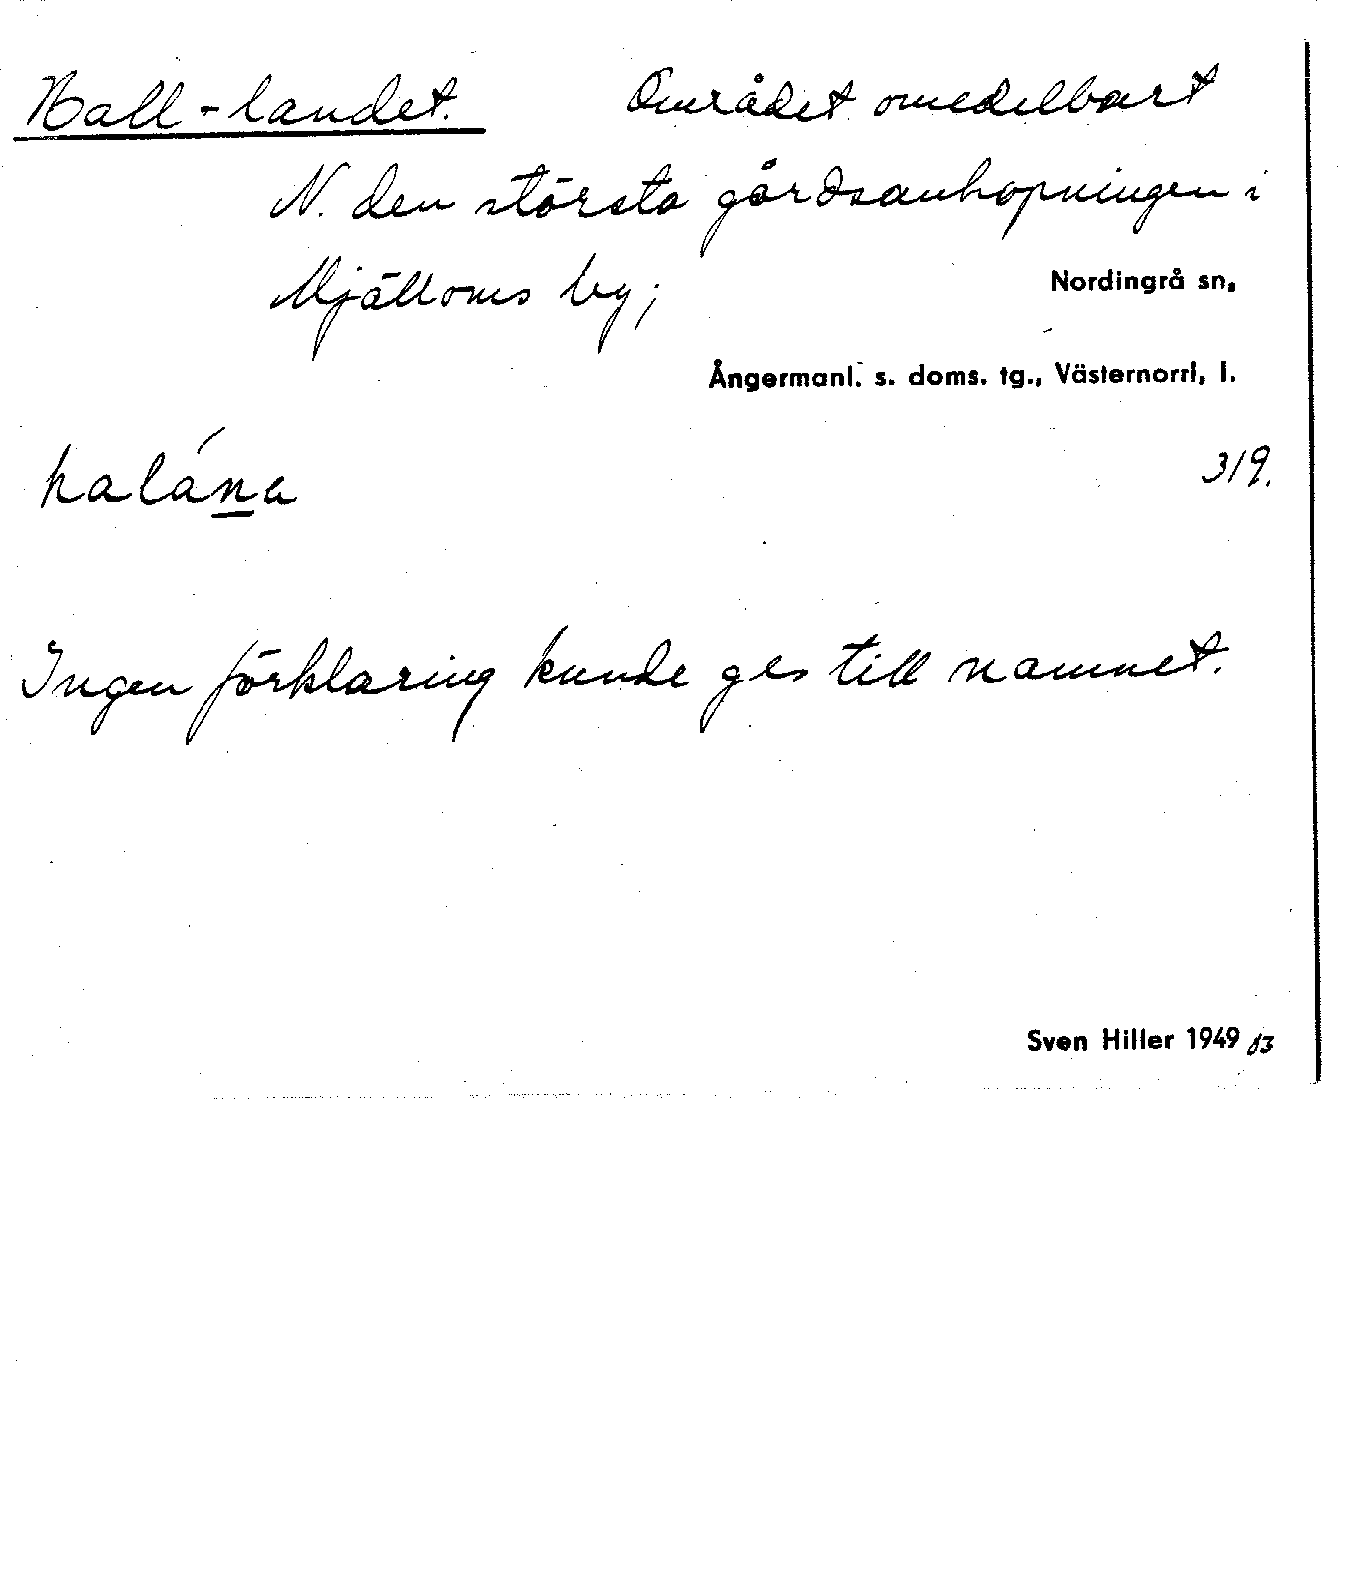 Hall-landet. Området omedelbart
N. den största gårdsanhopningen i
Mjälloms by; Nordingrå sn,
Ångermanl. s. doms. tg., Västernorrl, l.
halána 319.
Ingen förklaring kunde ges till namnet.
Sven Hiller 1949